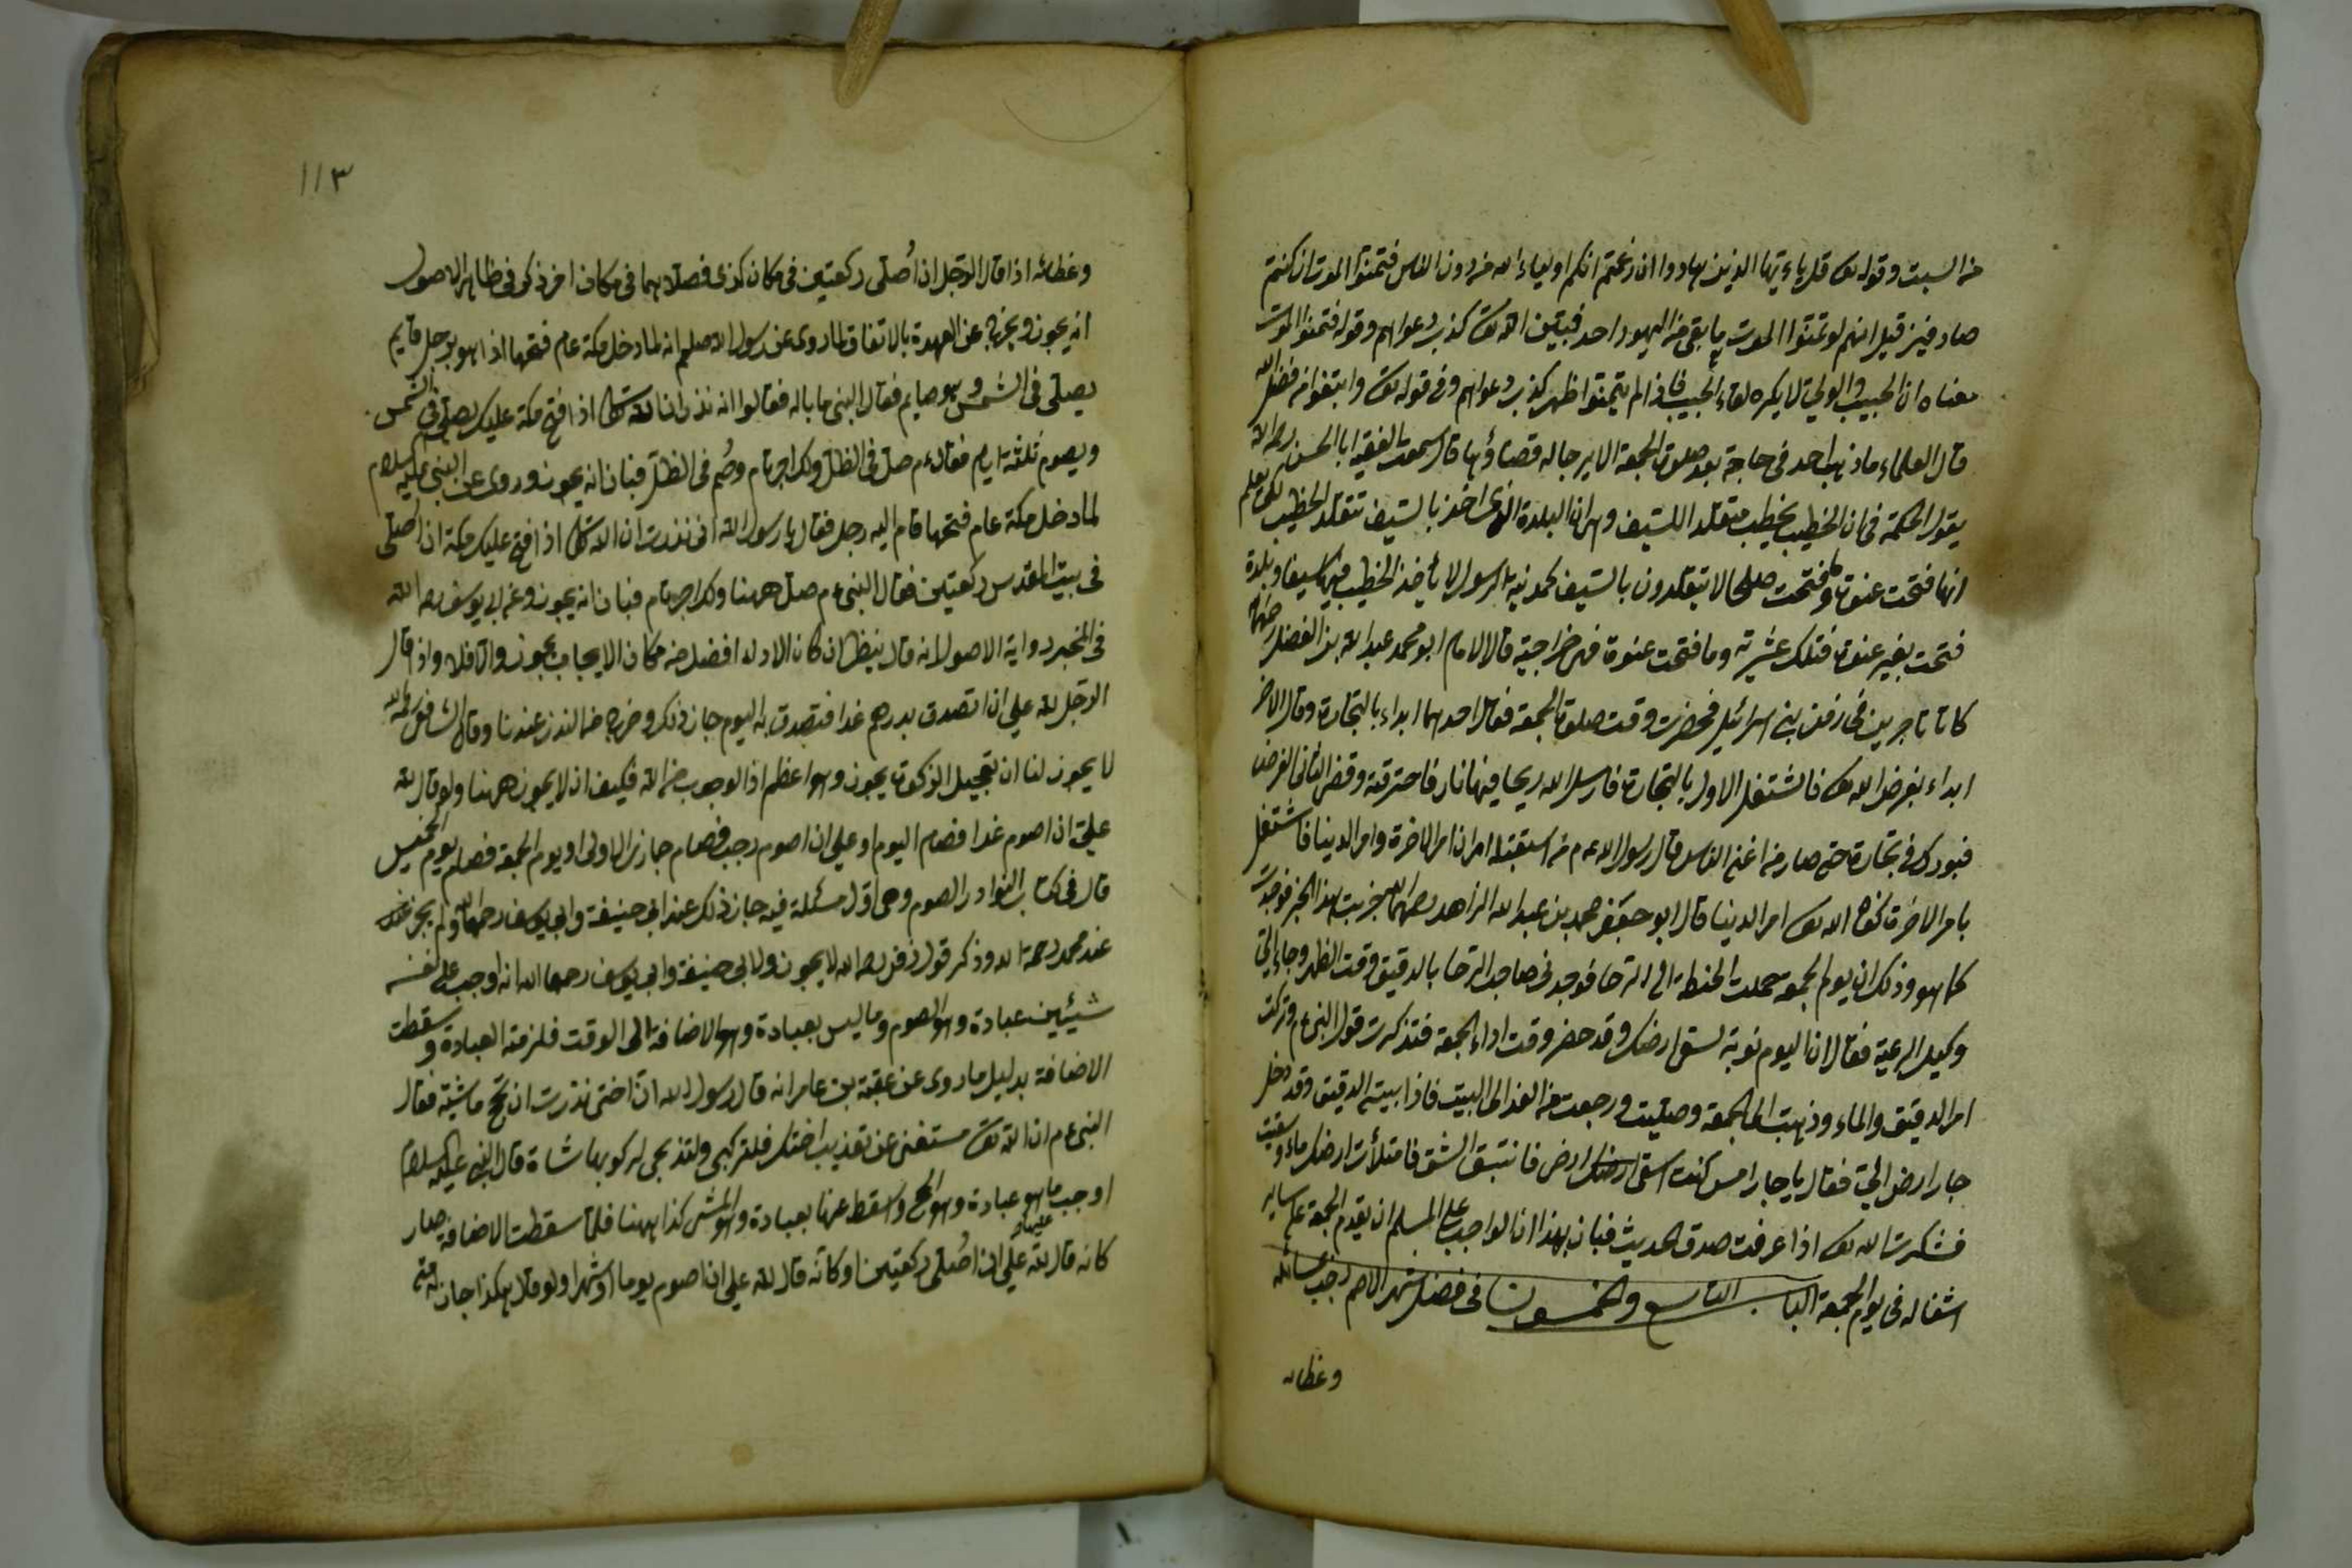 من السبت وقوله تع قل يا ءيها الذين هادوا ان زعمتم انكم اولياء لله من دون الناس فتمنوا الموت ان كنتم
صادقين قيل انهم لو تمنوا الموت ما بقى من اليهود احد فبين الله تع كذب دعواهم وقوله فتمنوا الموت
معناه ان الحبيب والولي لا يكره لقاء الحبيب فاذا لم يتمنوا ظهر كذب دعواهم وفى قوله تع وابتغوا من فضل الله
قال العلماء ما ذهب احد فى حاجة بعد صلوة الجمعة الا يرجا له قضاؤها قال سمعت الفقيه ابا الحسن رحمه الله
يقول الحكمة فى ان الخطيب يخطب متقلد السيف وهو ان البلدة التى اخذ بالسيف تتقلد الخطيب لكى يعلم
انها فتحت عنوة وما فتحت صلحا لا يتقلدون بالسيف كمدينة الرسول لا يأخذ الخطيب فيها سيفا وبلدة
فتحت بغير عنوة فتلك عشرية وما فتحت عنوة فهى خراجية قال الامام ابو محمد عبد الله بن الفضل رحمه الله
كانا تاجرين فى زمن بنى اسرائيل فحضرت وقت صلوة الجمعة فقال احدهما ابداء بالتجارة وقال الاخر
ابداء بفرض الله تع فاشتغل الاول بالتجارة فارسل الله ريحا فيها نار فاحترقته وقضى الثانى الفرض
فبورك فى تجارته حتى صار من اغنى الناس قال رسول الله عم من استقبله امران امر الاخرة وامر الدنيا فاشتغل
بامر الاخرة كفاه الله تع امر الدنيا قال ابو جعفر محمد بن عبد الله الزاهد رحمهما الله جربت هذا الخبر فوجدت
كما هو وذلك ان يوم الجمعة حملت الحنطة الى الرحا فوجدنى صاحب الرحا بالدقيق وقت الظهر وجاء الي
وكيل الرعية فقال ان اليوم نوبة لسقى ارضك وقد حضر وقت اداء الجمعة فتذكرت قول النبى عم وتركت
امر الدقيق والماء وذهبت الى الجمعة وصليت ورجعت من الغد الى البيت فاذا ببيته الدقيق وقد دخل
جار ارض الي فقال يا جار امس كنت اسقى ارض فانبثق الشق فامتلأت ارضك ماء وسقيت
فشكرت الله تع اذا عرفت صدق الحديث فبان بهذا ان الواجب على المسلم ان يقدم الجمعة على ساير
اشغاله فى يوم الجمعة الباب التاسع والخمسون فى فضل شهر الاصم رجب مسائله
وعظاته
١١٣
وعظاته اذا قال الرجل ان اصلى ركعتين فى مكان كذى فصلاهما فى مكان اخر ذكر فى ظاهر الاصول
انه يجوز ويخرج عن العهدة بالاتفاق لما روى عن رسول الله صلعم انه لما دخل مكة عام فتحها اذا هو برجل قايم
يصلى فى الشمس وهو صايم فقال النبى ما باله فقالوا انه نذر ان الله تع اذا فتح مكة عليك يصلى فى الشمس
ويصوم ثلثة ايام فقال عم صل فى الظل ولك اجر تام وصم فى الظل فبان انه يجوز وروى عن النبى عليه السلام
لما دخل مكة عام فتحها قام اليه رجل فقال يا رسول الله انى نذرت ان الله تع اذا فتح عليك مكة ان اصلى
فى بيت المقدس ركعتين فقال النبى عم صل ههنا ولك اجر تام فبان انه يجوز وعن ابى يوسف رحمه الله
فى المخبر رواية الاصول انه قال ينظر ان كان الاداء افضل من مكان الايجاب يجوز والا فلا واذا قال
الرجل لله علي ان اتصدق بدرهم غدا فتصدق به اليوم جاز ذلك وخرج من النذر عندنا وقال الشافعى رحمه الله
لا يجوز لنا ان تعجيل الزكوة يجوز وهو اعظم اذ الوجوب من الله فكيف ان لا يجوز ههنا ولو قال لله
علي ان اصوم غدا فصام اليوم او علي ان اصوم رجب فصام جمازى الاولى او يوم الجمعة فصام يوم الخميس
قال فى كتاب النوادر الصوم وهى اول مسئلة فيه جاز ذلك عند ابى حنيفة وابى يوسف رحمهما الله ولم يجز
عند محمد رحمة الله وذكر قول زفر رحمه الله لا يجوز ولابى حنيفة وابى يوسف رحمهما الله انه اوجب على نفسه
شيئين عبادة وهو الصوم وما ليس بعبادة وهو الاضافة الى الوقت فلزمته العبادة وسقطت
الاضافة بدليل ما روى عن عقبة بن عامر انه قال رسول الله ان اختى نذرت ان تحج ماشية فقال
النبى عم ان الله تع مستغنى عن تعذيب اختك فلتركبى ولتذبحى لركوبها شاة قال النبى عليه السلام
اوجب ما هو عبادة وهو الحج واسقط عنها بعبادة وهو المشى كذا ههنا فلما سقطت الاضافة صار
كانه قال لله علي ان اصلى ركعتين او كانه قال لله علي ان اصوم يوما او شهرا ولو قال هكذا جاز له متى